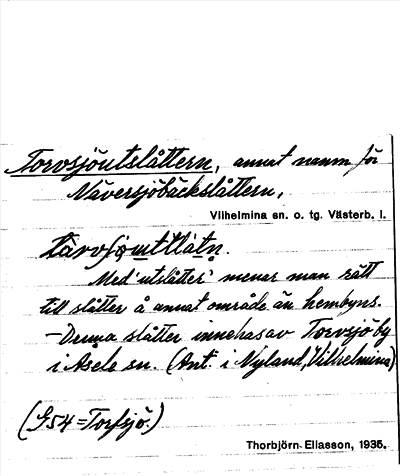 Torvsjöutslåttern, annat namn för
Näversjöbäckslåttern,
Vilhelmina sn. o. tg. Västerb. l.
Med 'utslåtter' menar man rätt
till slåtter å annat område än hembyns.
- Denna slåtter innehas av Torvsjö by
i Åsele sn. (Ant. i Nyland, Vilhelmina)
(G54 = Torfsjö.)
Thorbjörn Eliasson, 1935.